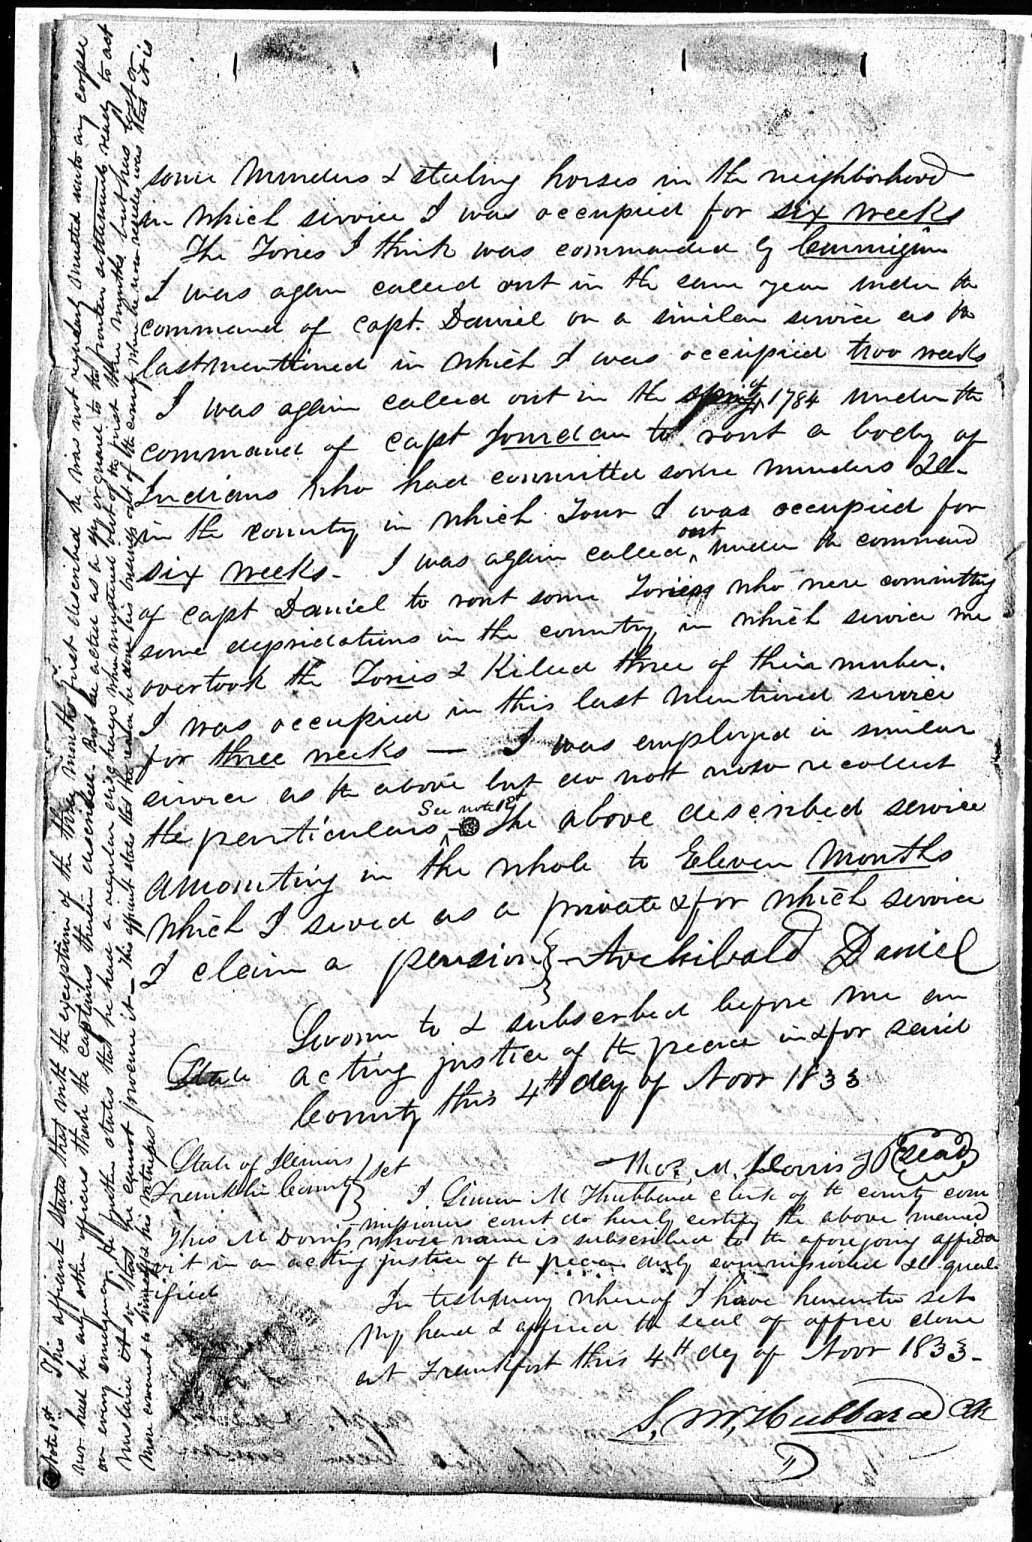 some murders & steeling horses in the neighborhood
in which service I was occupied for six weeks
The Tories I think was commanded by Cunnigim
I was again called out in the same year under the
command of capt. Daniel on a similar service as the
last mentioned in which I was occupied two weeks
I was again called out in the spring of 1784 under the
command of capt Jourdan to rout a body of
Indians who had committed some murders &c
in the country in which Tour I was occupied for
six weeks. I was again called out under the command
of capt Daniel to rout some Tories who were committing
some depridations in the country in which service we
overtook the Tories & Killed three of their number.
I was occupied in this last mentioned service
for three weeks — I was employed in similar
service as the above but do not now recollect
the perticulars See note 1st The above described service
amounting in the whole to Eleven Months
which I served as a private & for which service
I claim a pension Archibald Daniel
Sworn to & subscribed before me an
acting justice of the peace in & for said
County this 4th day of Novr 1833
State
Thos. M. Dorris J P Seal
State of Illinois
Franklin County } set
I Simon M Hubbard clerk of the county com
missioners court do hereby certify the above named
Thos M Dorris whose name is subscribed to the aforegoing affida
vit is an acting justice of the peace duly commissioned & quali
fied
In testimony whereof I have hereunto set
my hand & affixed the seal of office done
at Frankfort this 4th day of Novr 1833-
S, M, Hubbard Clk
Note 1st This affiant states that with the exception of the three months first described he was not regularly mustered into any corpse
nor had he any other officers than the captains therein described. But he acted as a
on every emergency. He further states that
mature of or that he cannot procure it — this affiant states that the reason he